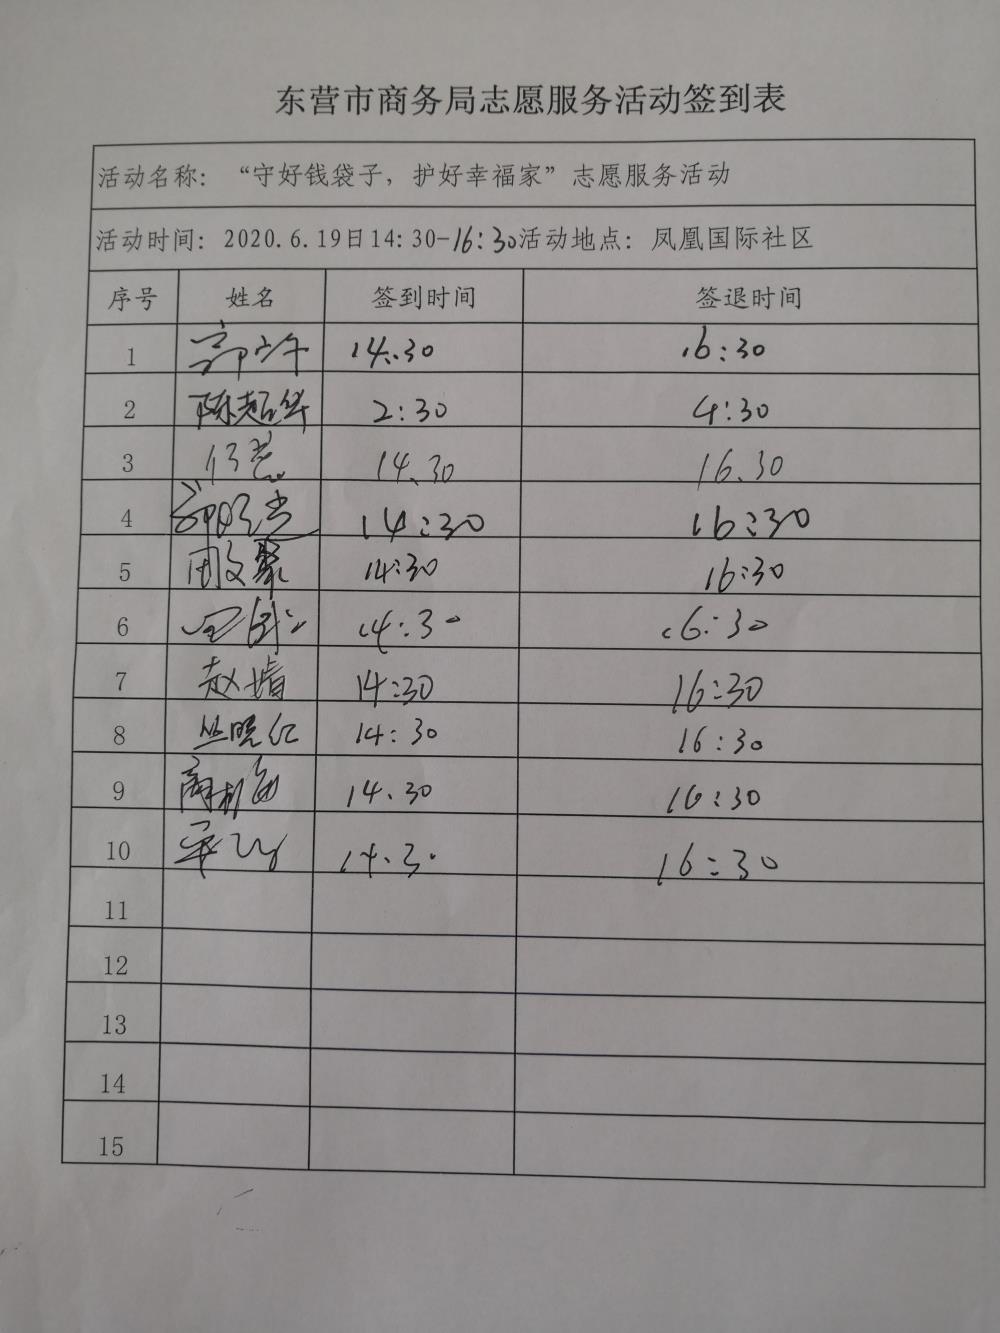 东营市商务局志愿服务活动签到表
活动名称：“守好钱袋子，护好幸福家”志愿服务活动
活动时间：2020.6.19日14:30-16:30活动地点：凤凰国际社区
序号 姓名 签到时间 签退时间
1 14.30 16:30
2 陈超华 2:30 4:30
3 14.30 16.30
4 14:30 16:30
5 周文聚 14:30 16:30
6 14:30 16:30
7 赵婧 14:30 16:30
8 丛晓红 14:30 16:30
9 14.30 16:30
10 14.30 16:30
11
12
13
14
15